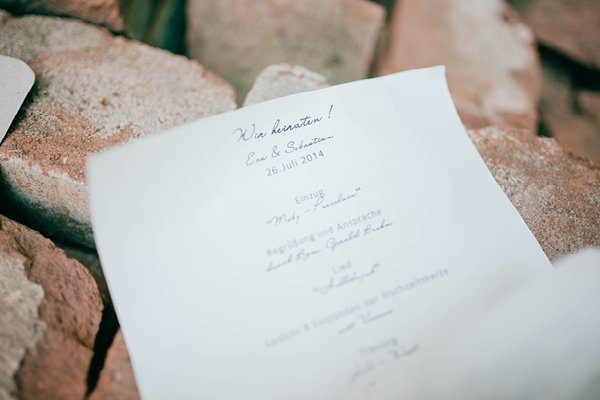 Wir heiraten !
Eva & Sebastian
26.Juli 2014
Einzug
"Moby - Porcelain"
Begrüßung und Ansprache
durch Bgm. Gerald
Lied
"Hallelujah"
Gedicht & Entzünden der Hochzeitskerze
von
Trauung